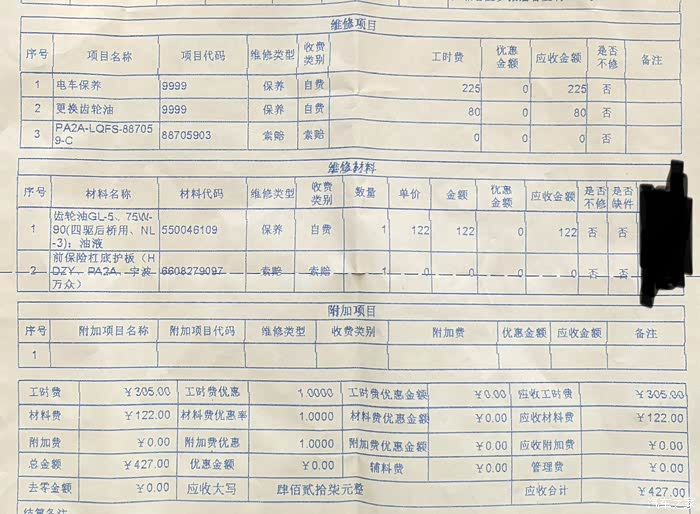 维修项目
序号 项目名称 项目代码 维修类型 收费类别 工时费 优惠金额 应收金额 是否不修 备注
1 电车保养 9999 保养 自费 225 0 225 否
2 更换齿轮油 9999 保养 自费 80 0 80 否
3 PA2A-LQFS-887059-C 88705903 索赔 索赔 0 0 0 否
维修材料
序号 材料名称 材料代码 维修类型 收费类别 数量 单价 金额 优惠金额 应收金额 是否不修 是否缺件
1 齿轮油GL-5、75W-90(四驱后桥用、NL-3)；油液 550046109 保养 自费 1 122 122 0 122 否 否
2 前保险杠底护板（HDZY、PA2A、宁波万众） 6608279097 索赔 索赔 1 0 0 0 0 否 否
附加项目
序号 附加项目名称 附加项目代码 维修类型 收费类别 附加费 优惠金额 应收金额 备注
1
工时费 ￥305.00 工时费优惠 1.0000 工时费优惠金额 ￥0.00 应收工时费 ￥305.00
材料费 ￥122.00 材料费优惠率 1.0000 材料费优惠金额 ￥0.00 应收材料费 ￥122.00
附加费 ￥0.00 附加费优惠 1.0000 附加费优惠金额 ￥0.00 应收附加费 ￥0.00
总金额 ￥427.00 优惠金额 ￥0.00 辅料费 ￥0.00 管理费 ￥0.00
去零金额 ￥0.00 应收大写 肆佰贰拾柒元整 应收合计 ￥427.00
结算备注